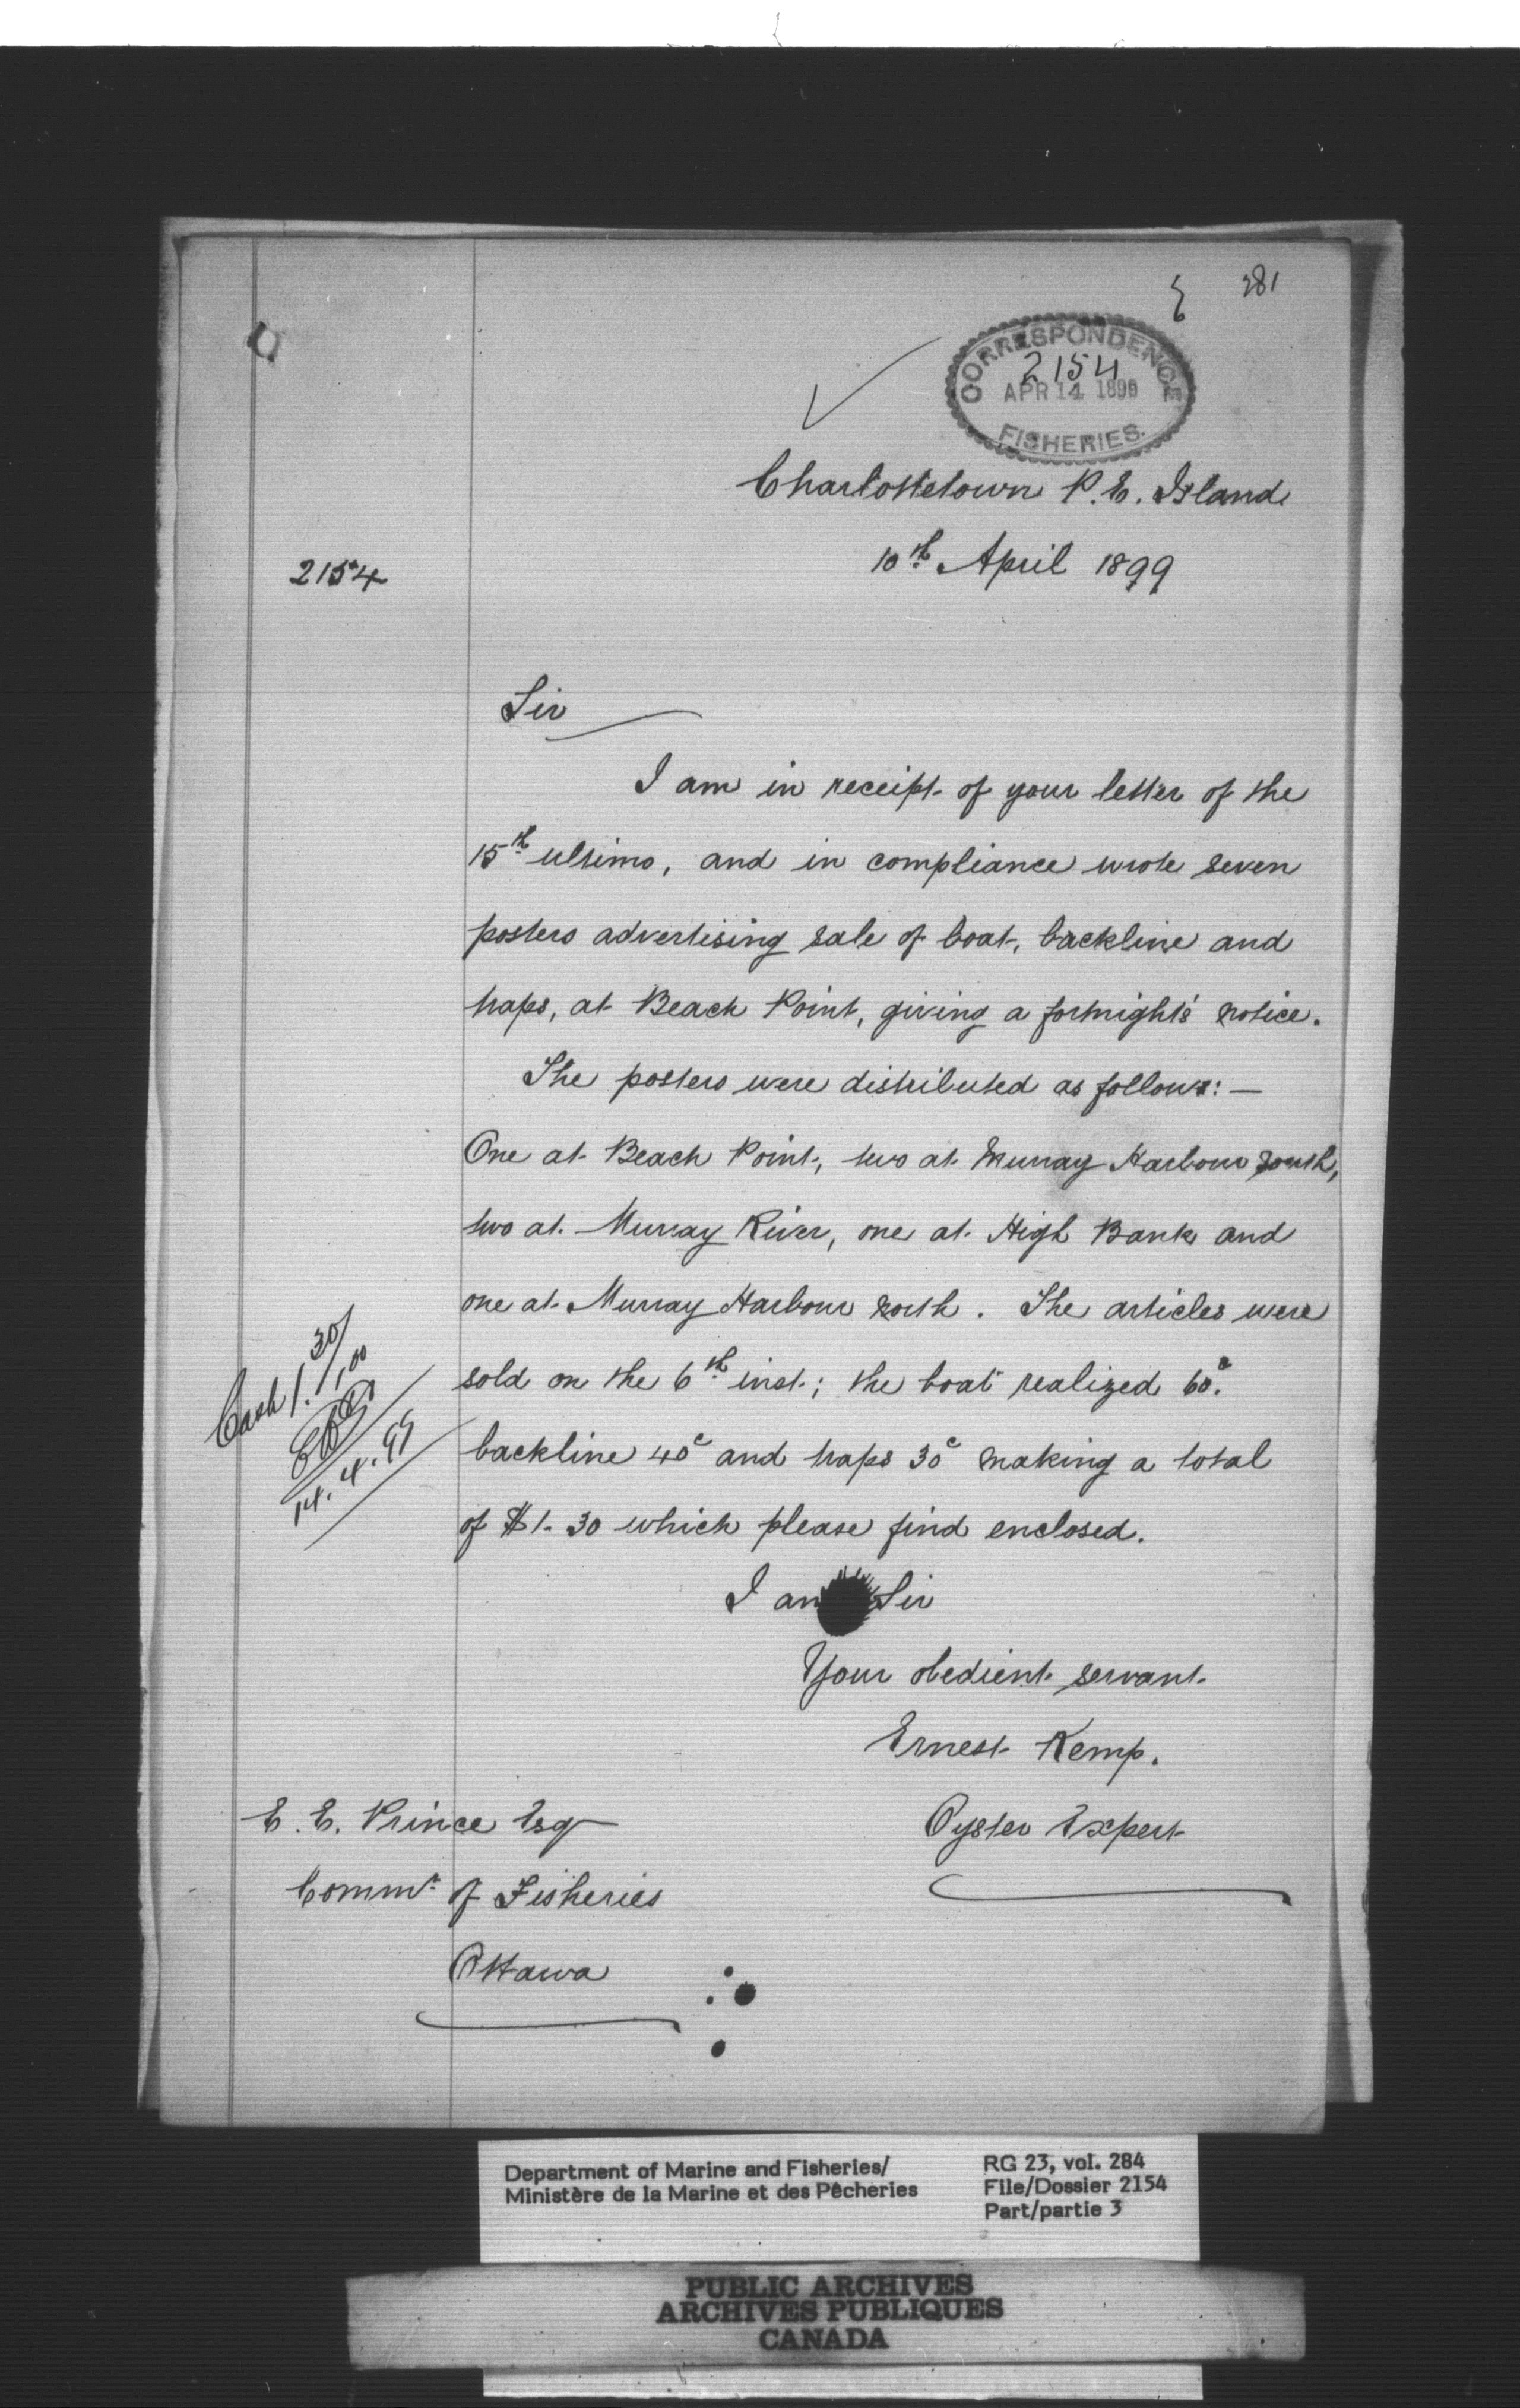 281
CORRESPONDENCE
2154
APR 14 1899
FISHERIES.
Charlottetown P.E. Island
10th April 1899
2154
Sir
I am in receipt of your letter of the
15th ultimo, and in compliance wrote seven
posters advertising sale of boat, backline and
traps, at Beach Point, giving a fortnight's notice.
The posters were distributed as follows:—
One at Beach Point, two at Murray Harbour South,
two at Murray River, one at High Bank and
one at Murray Harbour North. The articles were
sold on the 6th inst.; the boat realized 60c.
backline 40c and traps 30c making a total
of $1.30 which please find enclosed.
Cash 1.30/1.00
14.4.99
I am Sir
Your obedient servant
Ernest Kemp.
Oyster Expert
E. E. Prince Esq
Commr of Fisheries
Ottawa
Department of Marine and Fisheries/
Ministère de la Marine et des Pêcheries
RG 23, vol. 284
File/Dossier 2154
Part/partie 3
PUBLIC ARCHIVES
ARCHIVES PUBLIQUES
CANADA